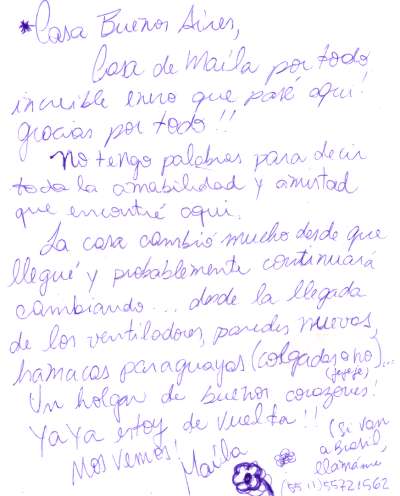 *Casa Buenos Aires,
Casa de Maila por todo
increible enero que pasé aquí!
gracias por todo!!
No tengo palabras para decir
toda la amabilidad y amistad
que encontré aqui.
La casa cambió mucho desde que
llegué y probablemente continuará
cambiando... desde la llegada
de los ventiladores, paredes nuevas,
hamacas paraguayas (colgadas o no)...
(jejeje)
Un holgar de buenos corazones!
Ya Ya estoy de vuelta!!
Nos vemos!
Maíla
(Si van
a Brasil,
llámáme
(55 11) 55721562